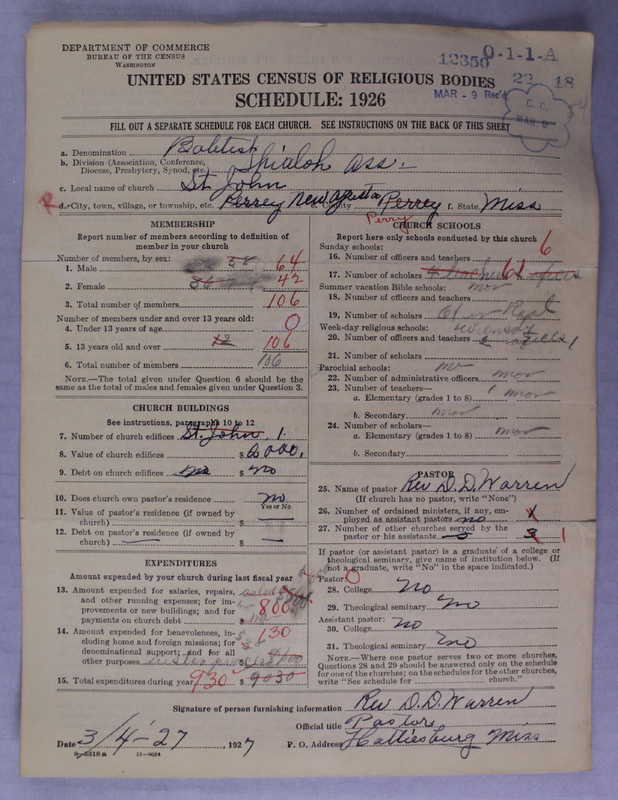 DEPARTMENT OF COMMERCE
BUREAU OF THE CENSUS
WASHINGTON
12350 0-1-1-A
22 18
MAR - 9 Rec'd
C. C.
MAR 9
UNITED STATES CENSUS OF RELIGIOUS BODIES
SCHEDULE: 1926
FILL OUT A SEPARATE SCHEDULE FOR EACH CHURCH. SEE INSTRUCTIONS ON THE BACK OF THIS SHEET
a. Denomination Babtist
b. Division (Association, Conference, Diocese, Presbytery, Synod, etc.) Shialoh Ass.
c. Local name of church St. John
d. City, town, village, or township, etc. Perrey New Agusta e. County Perrey f. State, Miss
Perry
MEMBERSHIP
Report number of members according to definition of
member in your church
Number of members, by sex:
1. Male 64
2. Female 42
3. Total number of members 106
Number of members under and over 13 years old:
4. Under 13 years of age 0
5. 13 years old and over 12 106
6. Total number of members 106
NOTE.—The total given under Question 6 should be
same as the total of males and females given under Question 3.
CHURCH BUILDINGS
See instructions, paragraphs 10 to 12
7. Number of church edifices St. John 1.
8. Value of church edifices $ 2000.
9. Debt on church edifices no $ no
10. Does church own pastor's residence no
Yes or No
11. Value of pastor's residence (if owned by
church) $
12. Debt on pastor's residence (if owned by
church) $
EXPENDITURES
Amount expended by your church during last fiscal year
13. Amount expended for salaries, repairs,
and other running expenses; for im-
provements or new buildings; and for
payments on church debt $ 800
14. Amount expended for benevolences, in-
cluding home and foreign missions; for
denominational support; and for all
other purposes $ 130
15. Total expenditures during year 930 $ 9030
CHURCH SCHOOLS
Report here only schools conducted by this church
Sunday schools:
16. Number of officers and teachers 6
17. Number of scholars 61
Summer vacation Bible schools:
18. Number of officers and teachers
19. Number of scholars
Week-day religious schools:
20. Number of officers and teachers
21. Number of scholars
Parochial schools: no
22. Number of administrative officers
23. Number of teachers—
a. Elementary (grades 1 to 8)
b. Secondary
24. Number of scholars—
a. Elementary (grades 1 to 8)
b. Secondary
PASTOR
25. Name of pastor Rev D. D. Warren
(If church has no pastor, write "None")
26. Number of ordained ministers, if any, em-
ployed as assistant pastors no x
27. Number of other churches served by the
pastor or his assistants 3 1
If pastor (or assistant pastor) is a graduate of a college or
theological seminary, give name of institution below. (If
not a graduate, write "No" in the space indicated.)
Pastor: 0
28. College No
29. Theological seminary No
Assistant pastor:
30. College No
31. Theological seminary No
NOTE.—Where one pastor serves two or more churches,
Questions 28 and 29 should be answered only on the schedule
for one of the churches; on the schedules for the other churches,
write "See schedule for church."
Signature of person furnishing information Rev D. D. Warren
Official title Pastors
Date 3/4-27, 1927 P. O. Address Hattiesburg Miss
8-5318a 11-9084